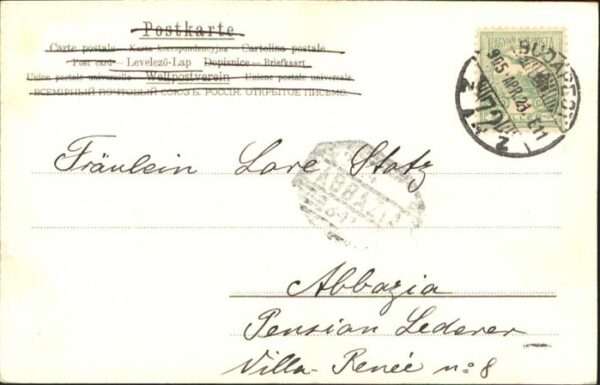 Postkarte
Carte postale Karta korespondencyjna Cartolina postale
Post card Levelező-Lap Dopisnice Briefkaart
Union postale universelle Weltpostverein Unione postale universale
ВСЕМІРНЫЙ ПОЧТОВЫЙ СОЮЗЪ. РОССІЯ. ОТКРЫТОЕ ПИСЬМО.
BUDAPEST
905 APR 23 E11
Fräulein Lore Stotz
ABBAZIA
Abbazia
Pension Lederer
Villa Renée no 8